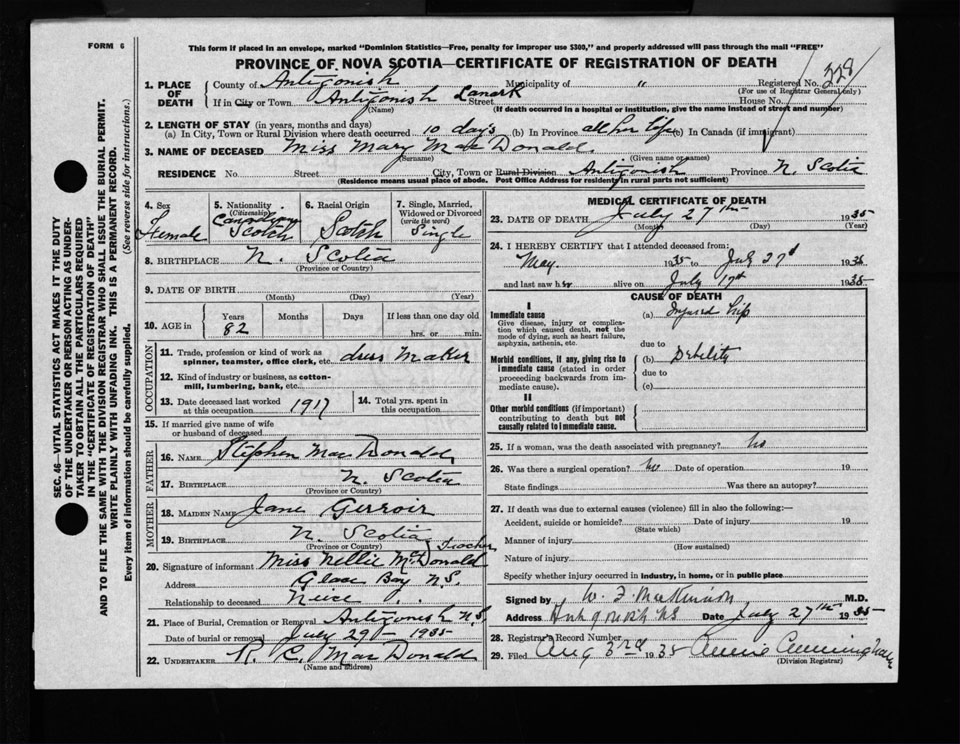 FORM 6
This form if placed in an envelope, marked "Dominion Statistics—Free, penalty for improper use $300," and properly addressed will pass through the mail "FREE"
PROVINCE OF NOVA SCOTIA—CERTIFICATE OF REGISTRATION OF DEATH
1. PLACE OF DEATH County of Antigonish Municipality of " Registered No. 328
(For use of Registrar General only)
If in City or Town Antigonish Lanark Street House No.
(Name) (If death occurred in a hospital or institution, give the name instead of street and number)
2. LENGTH OF STAY (in years, months and days)
(a) In City, Town or Rural Division where death occurred 10 days (b) In Province all her life (c) In Canada (if immigrant)
3. NAME OF DECEASED Miss Mary Mac Donald
(Surname) (Given name or names)
RESIDENCE No. Street City, Town or Rural Division Antigonish Province N. Scotia
(Residence means usual place of abode. Post Office Address for residents in rural parts not sufficient)
4. Sex Female
5. Nationality (Citizenship) Canadian Scotch
6. Racial Origin Scotch
7. Single, Married, Widowed or Divorced (write the word) Single
8. BIRTHPLACE N. Scotia
(Province or Country)
9. DATE OF BIRTH
(Month) (Day) (Year)
10. AGE in Years 82 Months Days If less than one day old hrs. or min.
OCCUPATION
11. Trade, profession or kind of work as spinner, teamster, office clerk, etc. dress Maker
12. Kind of industry or business, as cotton-mill, lumbering, bank, etc.
13. Date deceased last worked at this occupation 1917
14. Total yrs. spent in this occupation
15. If married give name of wife or husband of deceased
FATHER
16. Name Stephen Mac Donald
17. Birthplace N. Scotia
(Province or Country)
MOTHER
18. Maiden Name Jane Gerroir
19. Birthplace N. Scotia
(Province or Country) Teacher
20. Signature of informant Miss Nellie McDonald
Address Glace Bay N.S.
Relationship to deceased Neice
21. Place of Burial, Cremation or Removal Antigonish N.S.
Date of burial or removal July 29 - 1935
22. Undertaker R. C. Mac Donald
(Name and address)
MEDICAL CERTIFICATE OF DEATH
23. DATE OF DEATH July 27th 1935
(Month) (Day) (Year)
24. I HEREBY CERTIFY that I attended deceased from:
May 1935 to July 27d 1935
and last saw her alive on July 17th 1935
CAUSE OF DEATH
I
Immediate cause
Give disease, injury or complication which caused death, not the mode of dying, such as heart failure, asphyxia, asthenia, etc.
(a) Injured hip
due to
Morbid conditions, if any, giving rise to immediate cause (stated in order proceeding backwards from immediate cause).
(b) Debility
due to
(c)
II
Other morbid conditions (if important) contributing to death but not causally related to immediate cause.
25. If a woman, was the death associated with pregnancy? No
26. Was there a surgical operation? No Date of operation 19
State findings Was there an autopsy?
27. If death was due to external causes (violence) fill in also the following:—
Accident, suicide or homicide? Date of injury 19
(State which)
Manner of injury
(How sustained)
Nature of injury
Specify whether injury occurred in industry, in home, or in public place
Signed by W. F. MacKinnon M.D.
Address Antigonish NS Date July 27th 1935
28. Registrar's Record Number
29. Filed Aug 3rd 1935 Annie Cunningham
(Division Registrar)
SEC. 46—VITAL STATISTICS ACT MAKES IT THE DUTY
OF THE UNDERTAKER OR PERSON ACTING AS UNDER-
TAKER TO OBTAIN ALL THE PARTICULARS REQUIRED
IN THE "CERTIFICATE OF REGISTRATION OF DEATH"
AND TO FILE THE SAME WITH THE DIVISION REGISTRAR WHO SHALL ISSUE THE BURIAL PERMIT.
WRITE PLAINLY WITH UNFADING INK. THIS IS A PERMANENT RECORD.
Every item of information should be carefully supplied. (See reverse side for instructions.)